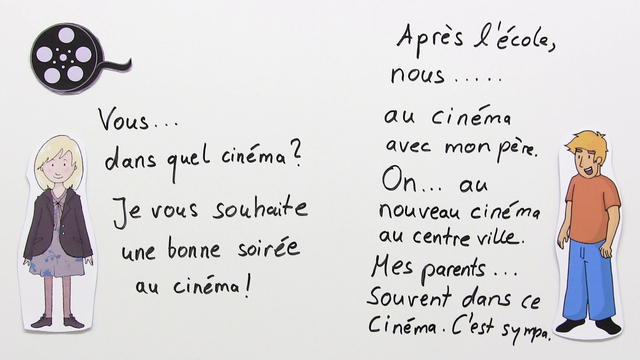 Vous...
dans quel cinéma?
Je vous souhaite
une bonne soirée
au cinéma!
Après l'école,
nous .....
au cinéma
avec mon père.
On... au
nouveau cinéma
au centre ville.
Mes parents ...
Souvent dans ce
Cinéma. C'est sympa.